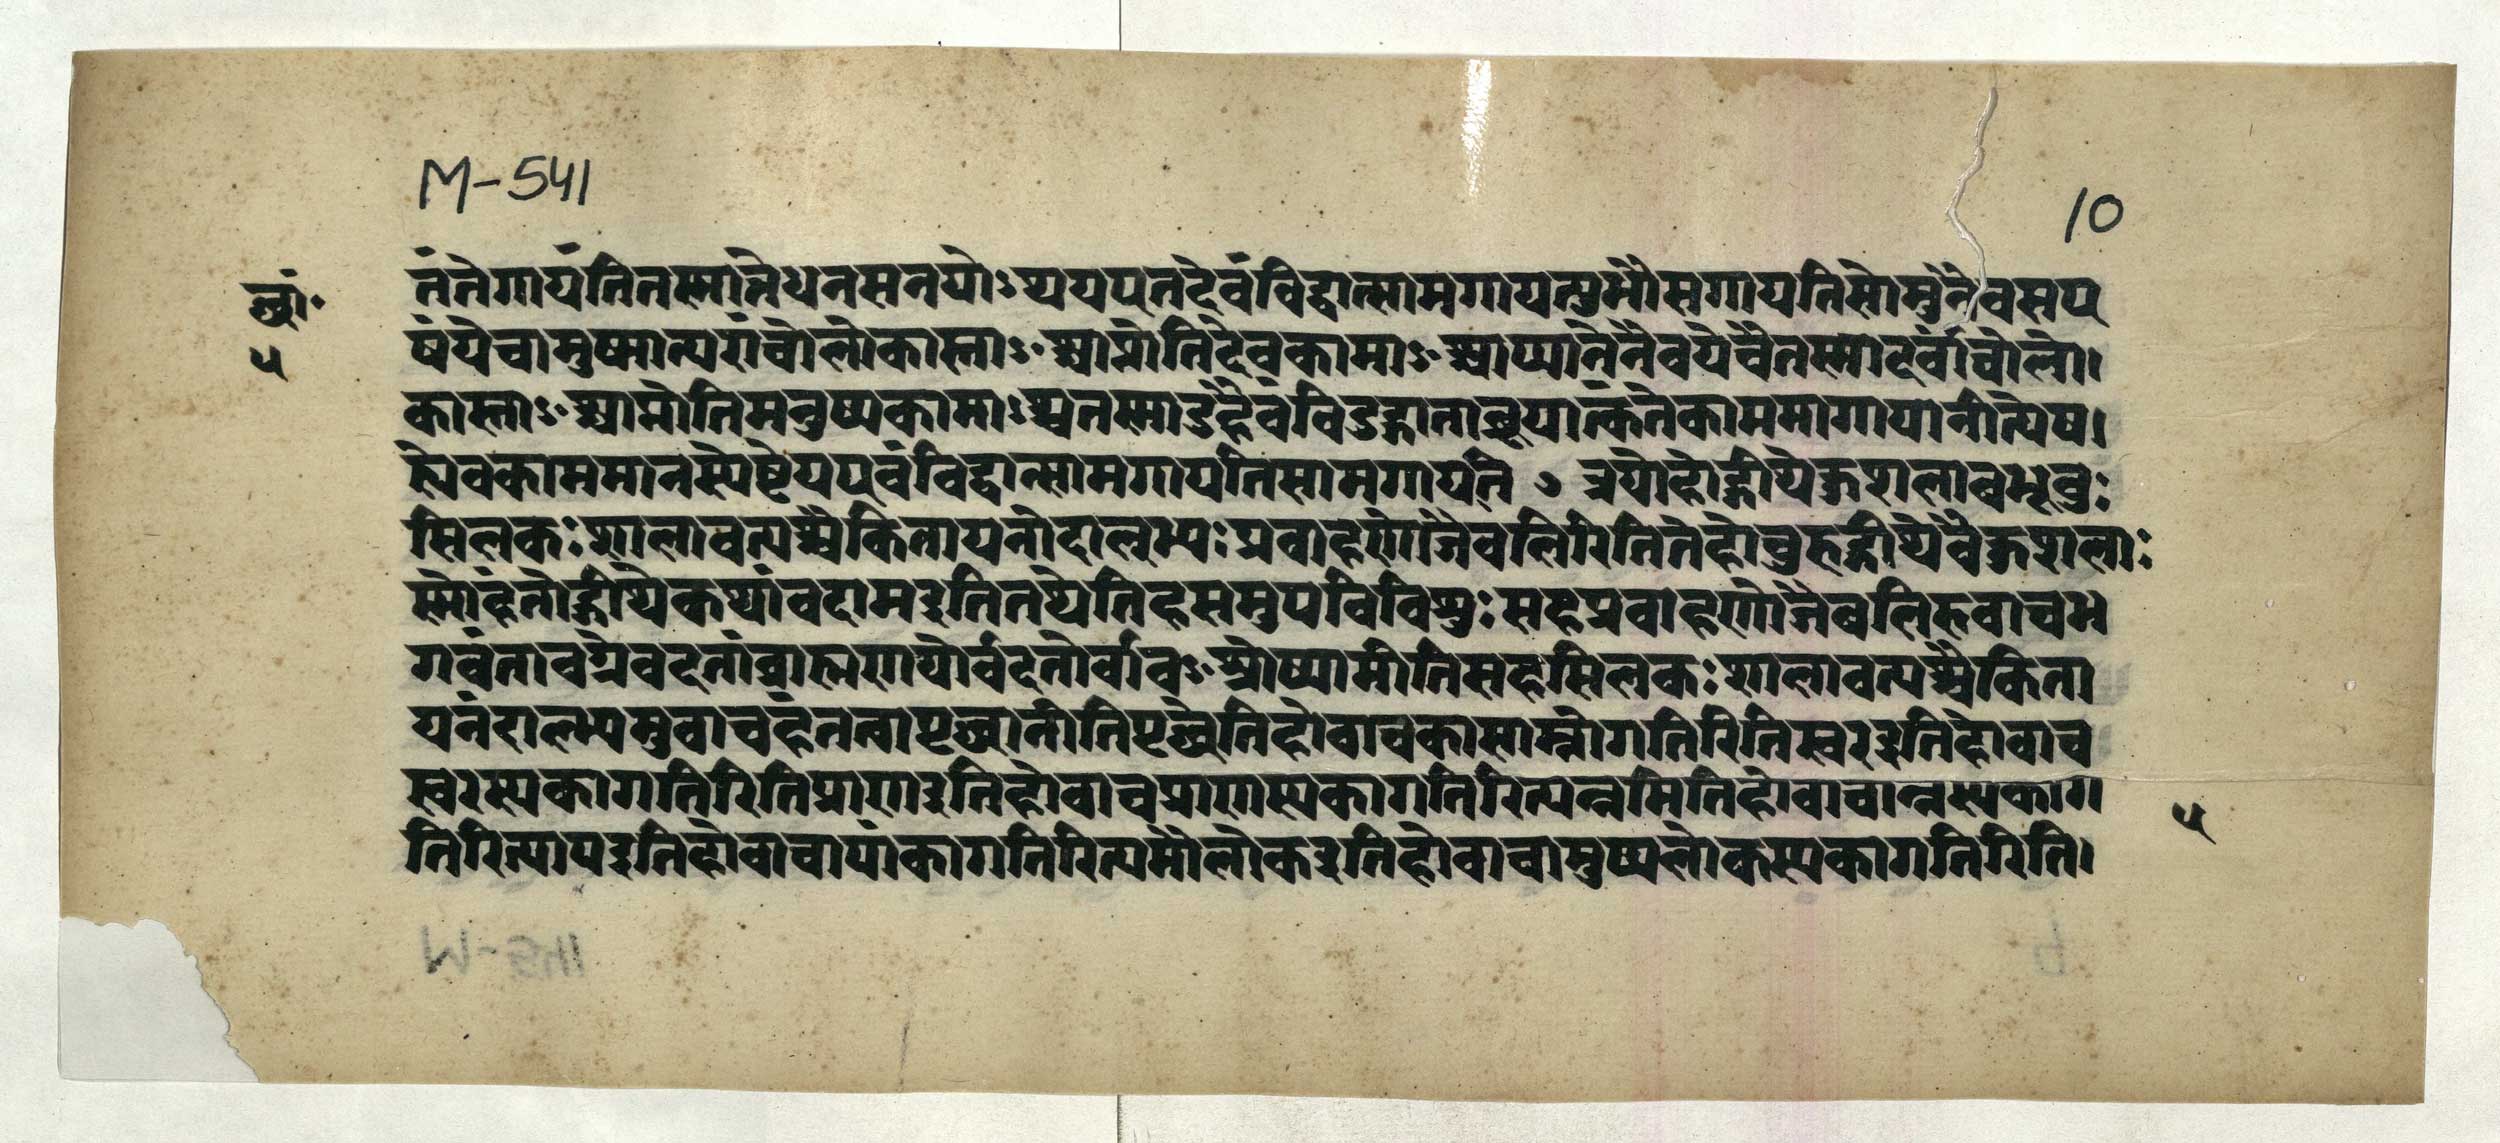 M-541
10
छां॰
५
तंतेगायंतितस्मात्तेधनसनयोऽथयएतदेवंविद्वान्सामगायत्युभौसगायतिसोमुनैवसए
षयेचामुष्मात्परांचोलोकास्ताꣳश्चाप्नोतिदेवकामाꣳश्चाथानेनैवयेचैतस्मादर्वांचोलो।
कास्ताꣳश्चाप्नोतिमनुष्यकामाꣳश्चतस्मादुहैवंविदुद्गाताब्रूयात्कंतेकाममागायानीत्येष।
ह्येवकाममानस्येष्टेयएवंविद्वान्सामगायतिसामगायति ७ त्रयोहोद्गीथेकुशलाबभूवुः
सिलकः शालावत्यश्चैकितायनोदाल्भ्यः प्रवाहणोजैवलिरितितेहोचुरुद्गीथेवैकुशलाः
स्मोहंतोद्गीथेकथांवदामइतितथेतिहसमुपविविशुः सहप्रवाहणोजैबलिरुवाचभ
गवंतावग्रेवदतांब्राह्मणयोर्वदतोर्वाचꣳश्रोष्यामीतिसहसिलकः शालावत्यश्चैकिता
यनंदाल्भ्यमुवाचहंतत्वापृच्छानीतिपृच्छेतिहोवाचकासाम्नोगतिरितिस्वरइतिहोवाच
स्वरस्यकागतिरितिप्राणइतिहोवाचप्राणस्यकागतिरित्यन्नमितिहोवाचान्नस्यकाग
तिरित्यापइतिहोवाचापांकागतिरित्यसौलोकइतिहोवाचामुष्यलोकस्यकागतिरिति।
५